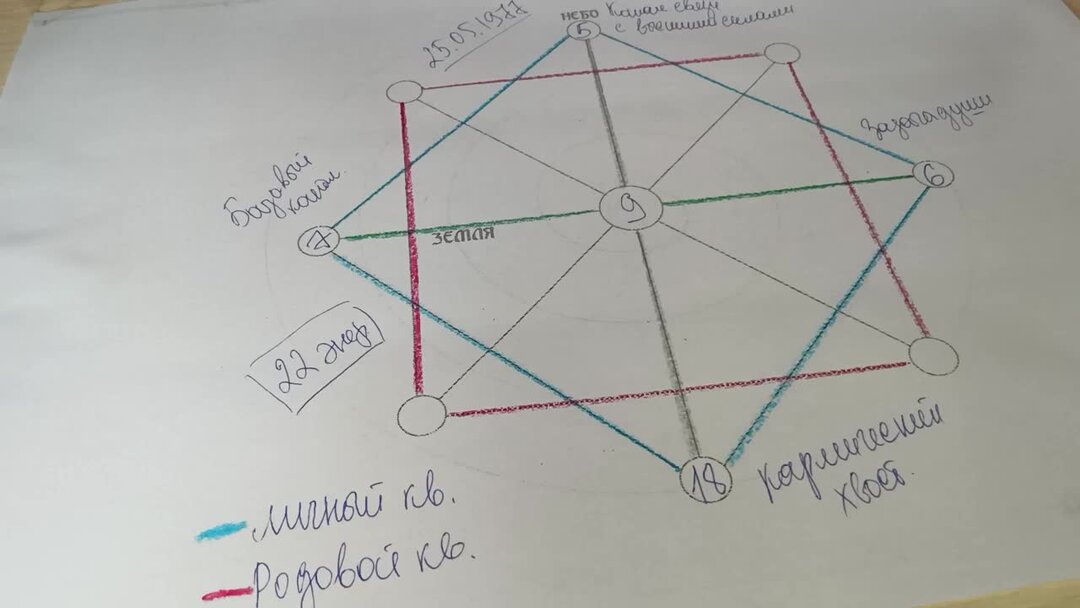 25.05.1977
НЕБО
Канал связи
с высшими силами
5
Зазеркалье души
6
Базовый
канал
7
ЗЕМЛЯ
9
22 энер.
18
Кармический
хвост.
Личный кв.
Родовой кв.